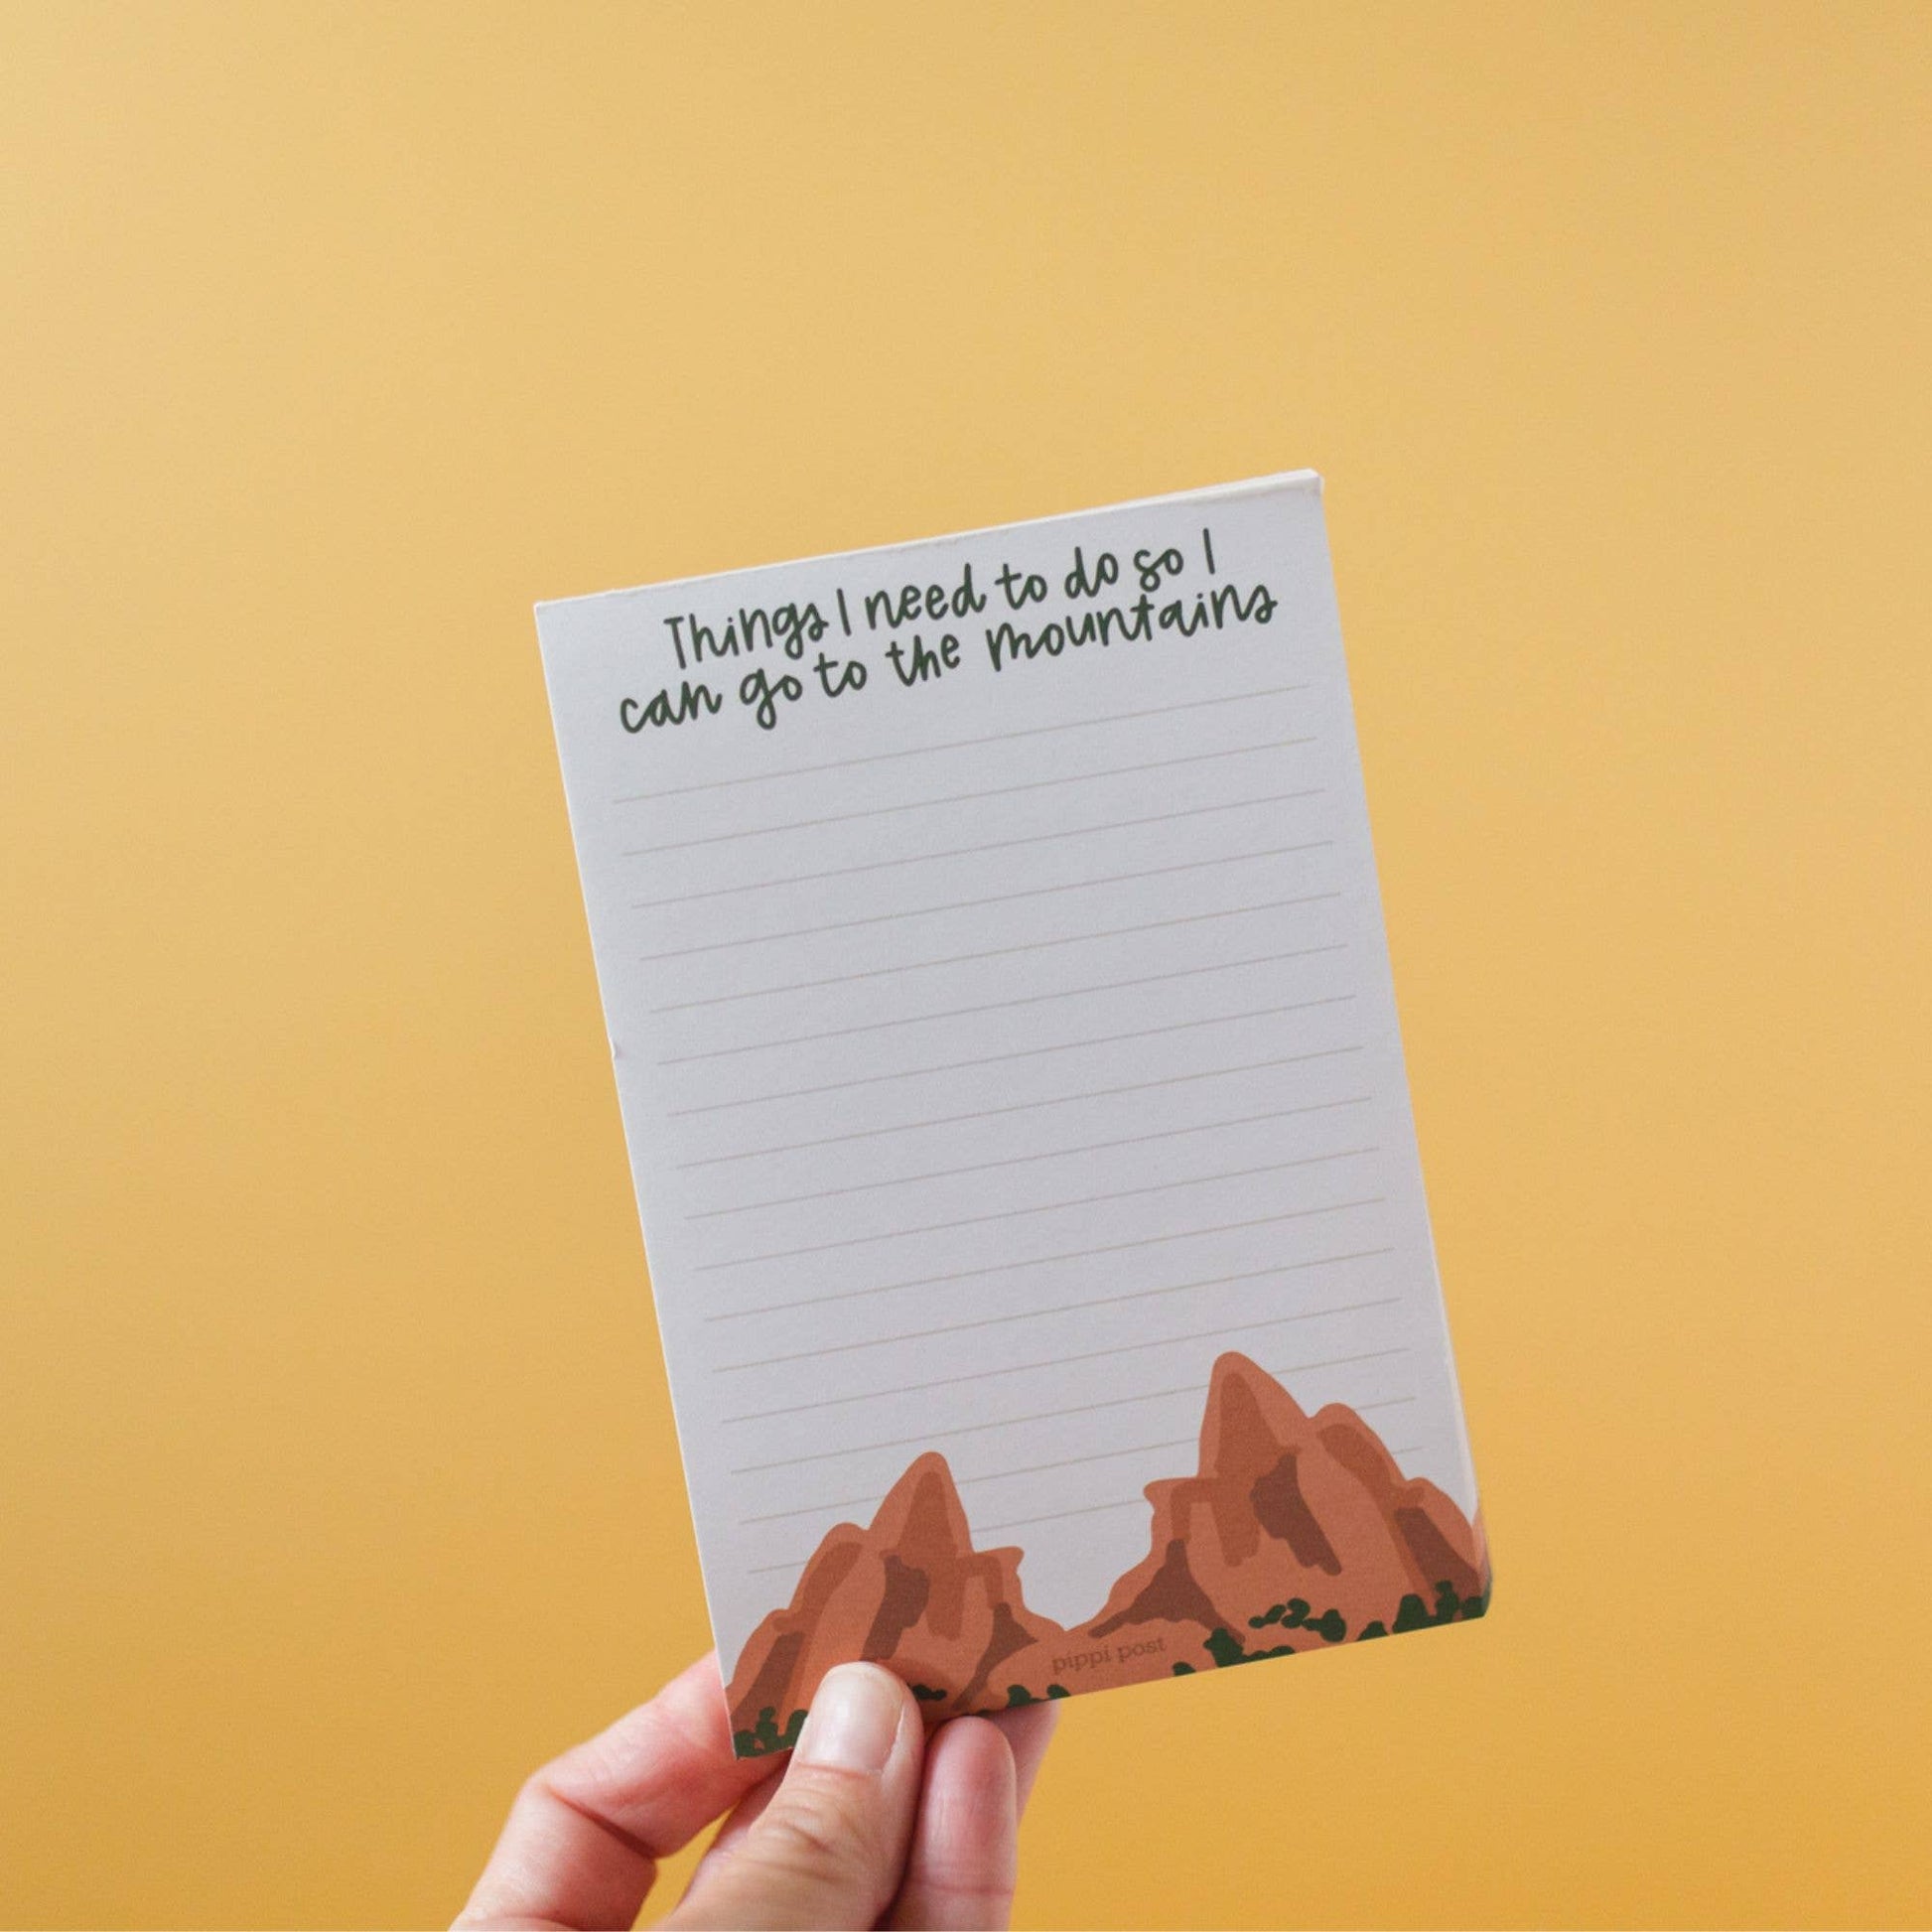 Things I need to do so I
can go to the mountains
pippi post